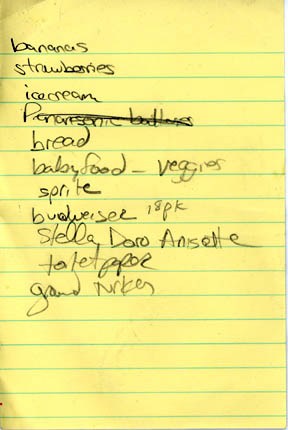 bananas
strawberries
icecream
Panarsonic batterys
bread
babyfood - veggies
sprite
budweiser 18pk
Stella Doro Anisette
toiletpaper
ground turkey